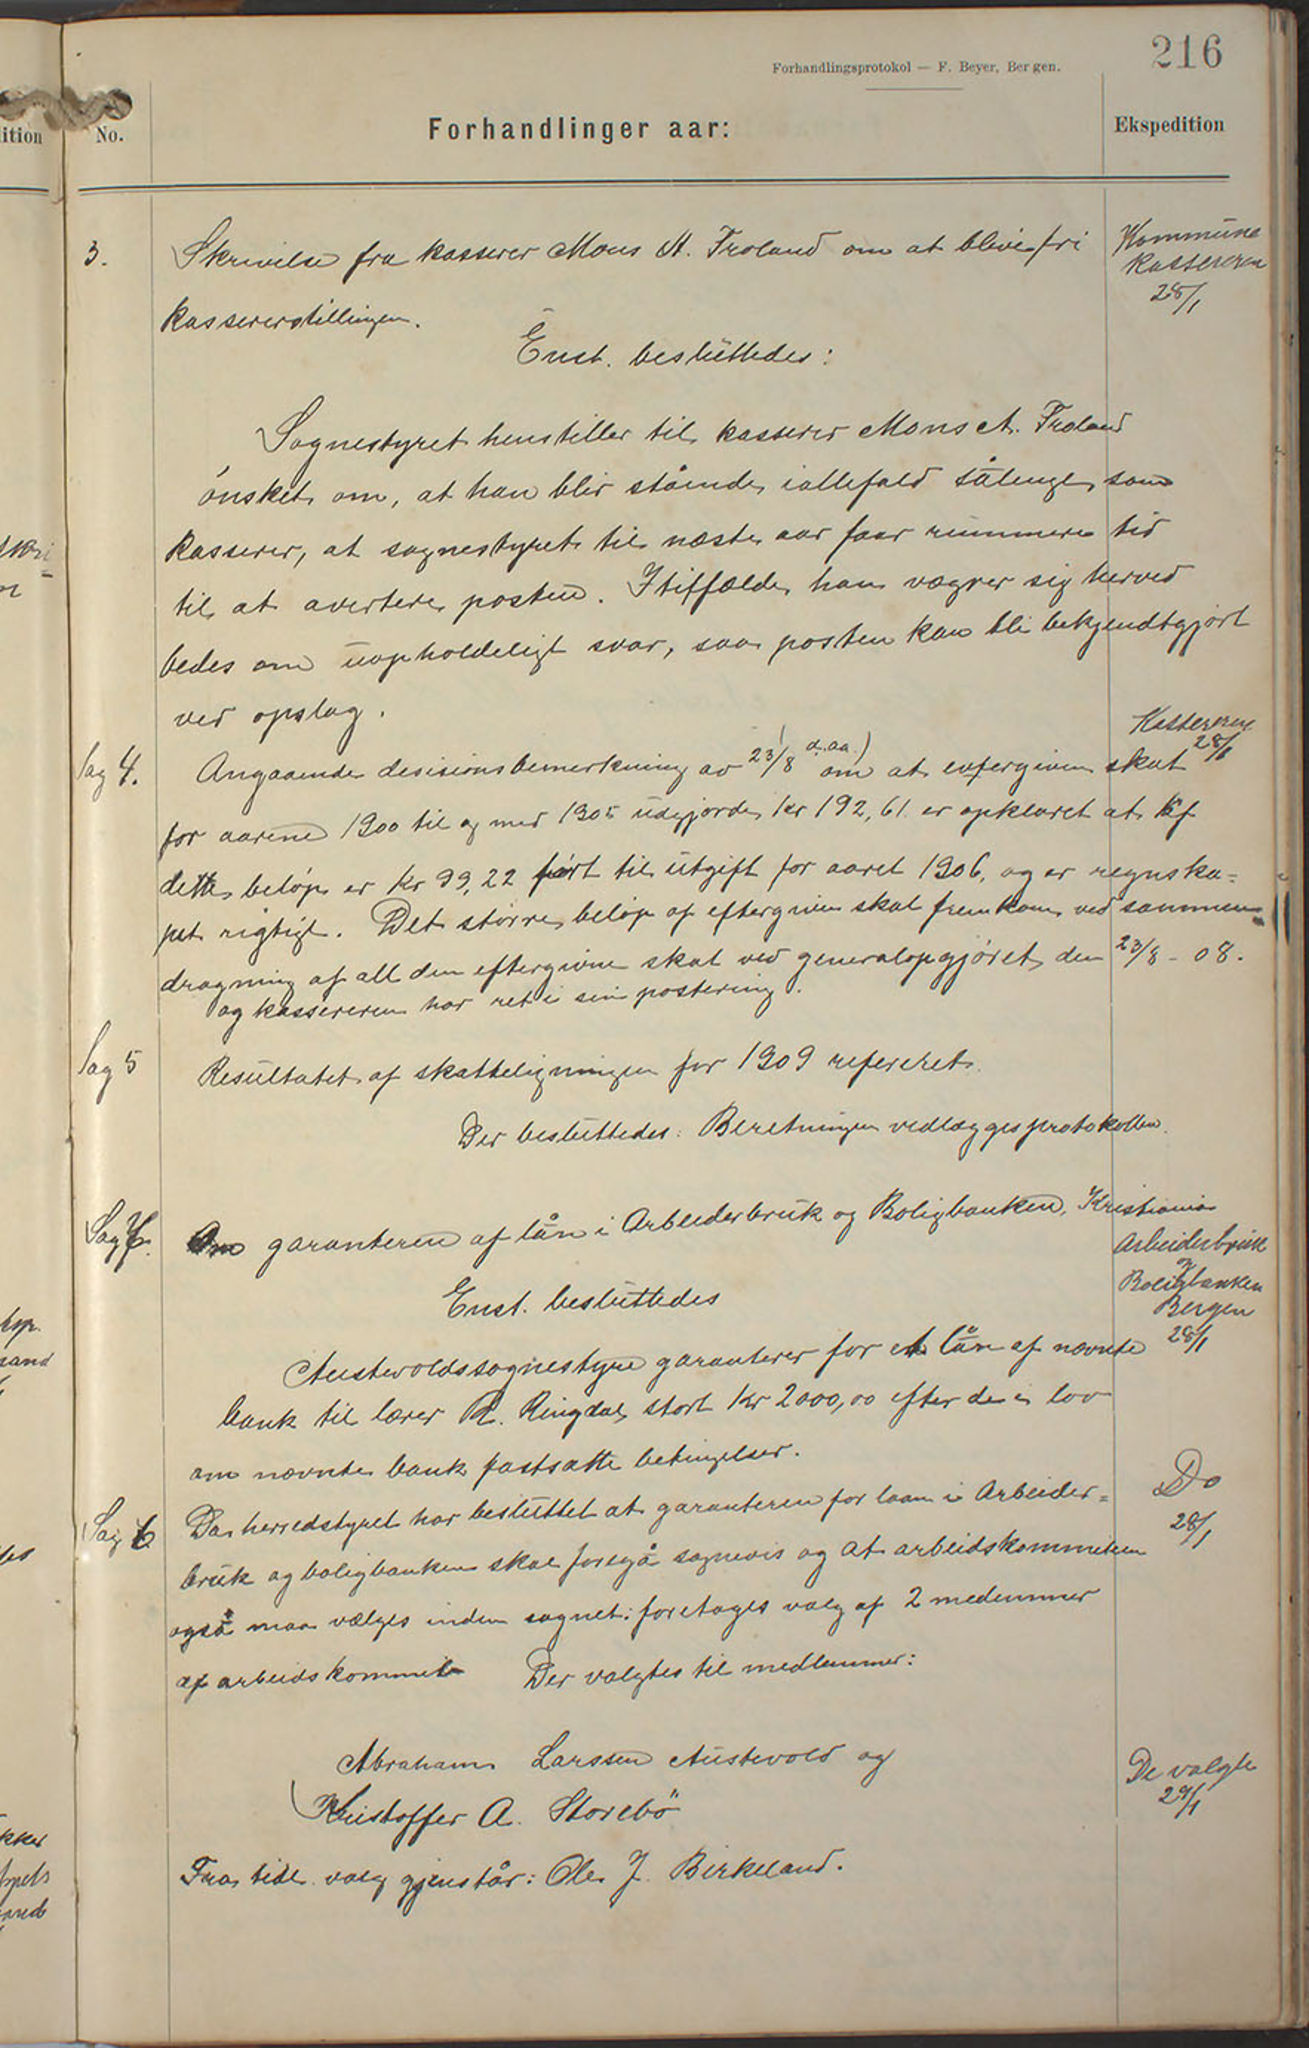 216
Forhandlingsprotokol — F. Beyer, Bergen.
ition
No.
Forhandlinger aar:
Ekspedition
3.
Skrivelse fra kasserer Mons A. Froland om at blive fri
kassererstillingen.
Kommune
kassereren
28/1
Enst. besluttedes:
Sognestyret henstiller til kasserer Mons A. Froland
ønsket om, at han blir stående iallefald sålenge som
kasserer, at sognestyret til næste aar faar rummere tid
til at avertere posten. Itilfælde han vægrer sig herved
bedes om uopholdeligt svar, saa posten kan bli bekjendtgjort
ved opslag.
Kassereren
28/1
Sag 4.
Angaaende desisionsbemerkning av 23/8 d.aa.) om at eftergiven skat
for aarene 1900 til og med 1905 udgjorde Kr 192,61 er opklaret at af
dette beløp er Kr 99,22 ført til utgift for aaret 1906, og er regnska-
pet rigtigt. Det større beløp af eftergiven skat fremkom ved sammen-
dragning af all den eftergivne skat ved generalopgjøret den 23/8 - 08.
og kassereren har ret i sin postering.
Sag 5
Resultatet af skatteligningen for 1909 refereret.
Der besluttedes: Beretningen vedlægges protokollen.
Sag
Om garanteren af lån i Arbeiderbruk og Boligbanken, Kristiania
Arbeiderbruk
og
Boligbanken
Bergen
28/1
Enst. besluttedes
Austevoldssognestyre garanterer for et lån af nævnte
bank til lærer R. Ringdal stort Kr 2000,00 efter de i lov
om nævnte bank fastsatte betingelser.
Sag 6
Da herredstyret har besluttet at garanteren for laan i Arbeider-
bruk og boligbanken skal foregå sognevis og at arbeidskommiteen
også maa vælges inden sognet: foretages valg af 2 medemmer
af arbeidskommite Der valgtes til medlemmer:
Do
28/1
Abraham Larssen Austevold og
Kristoffer A. Storebö
De valgte
29/1
Fra tidl. valg gjenstår: Ole J. Birkeland.